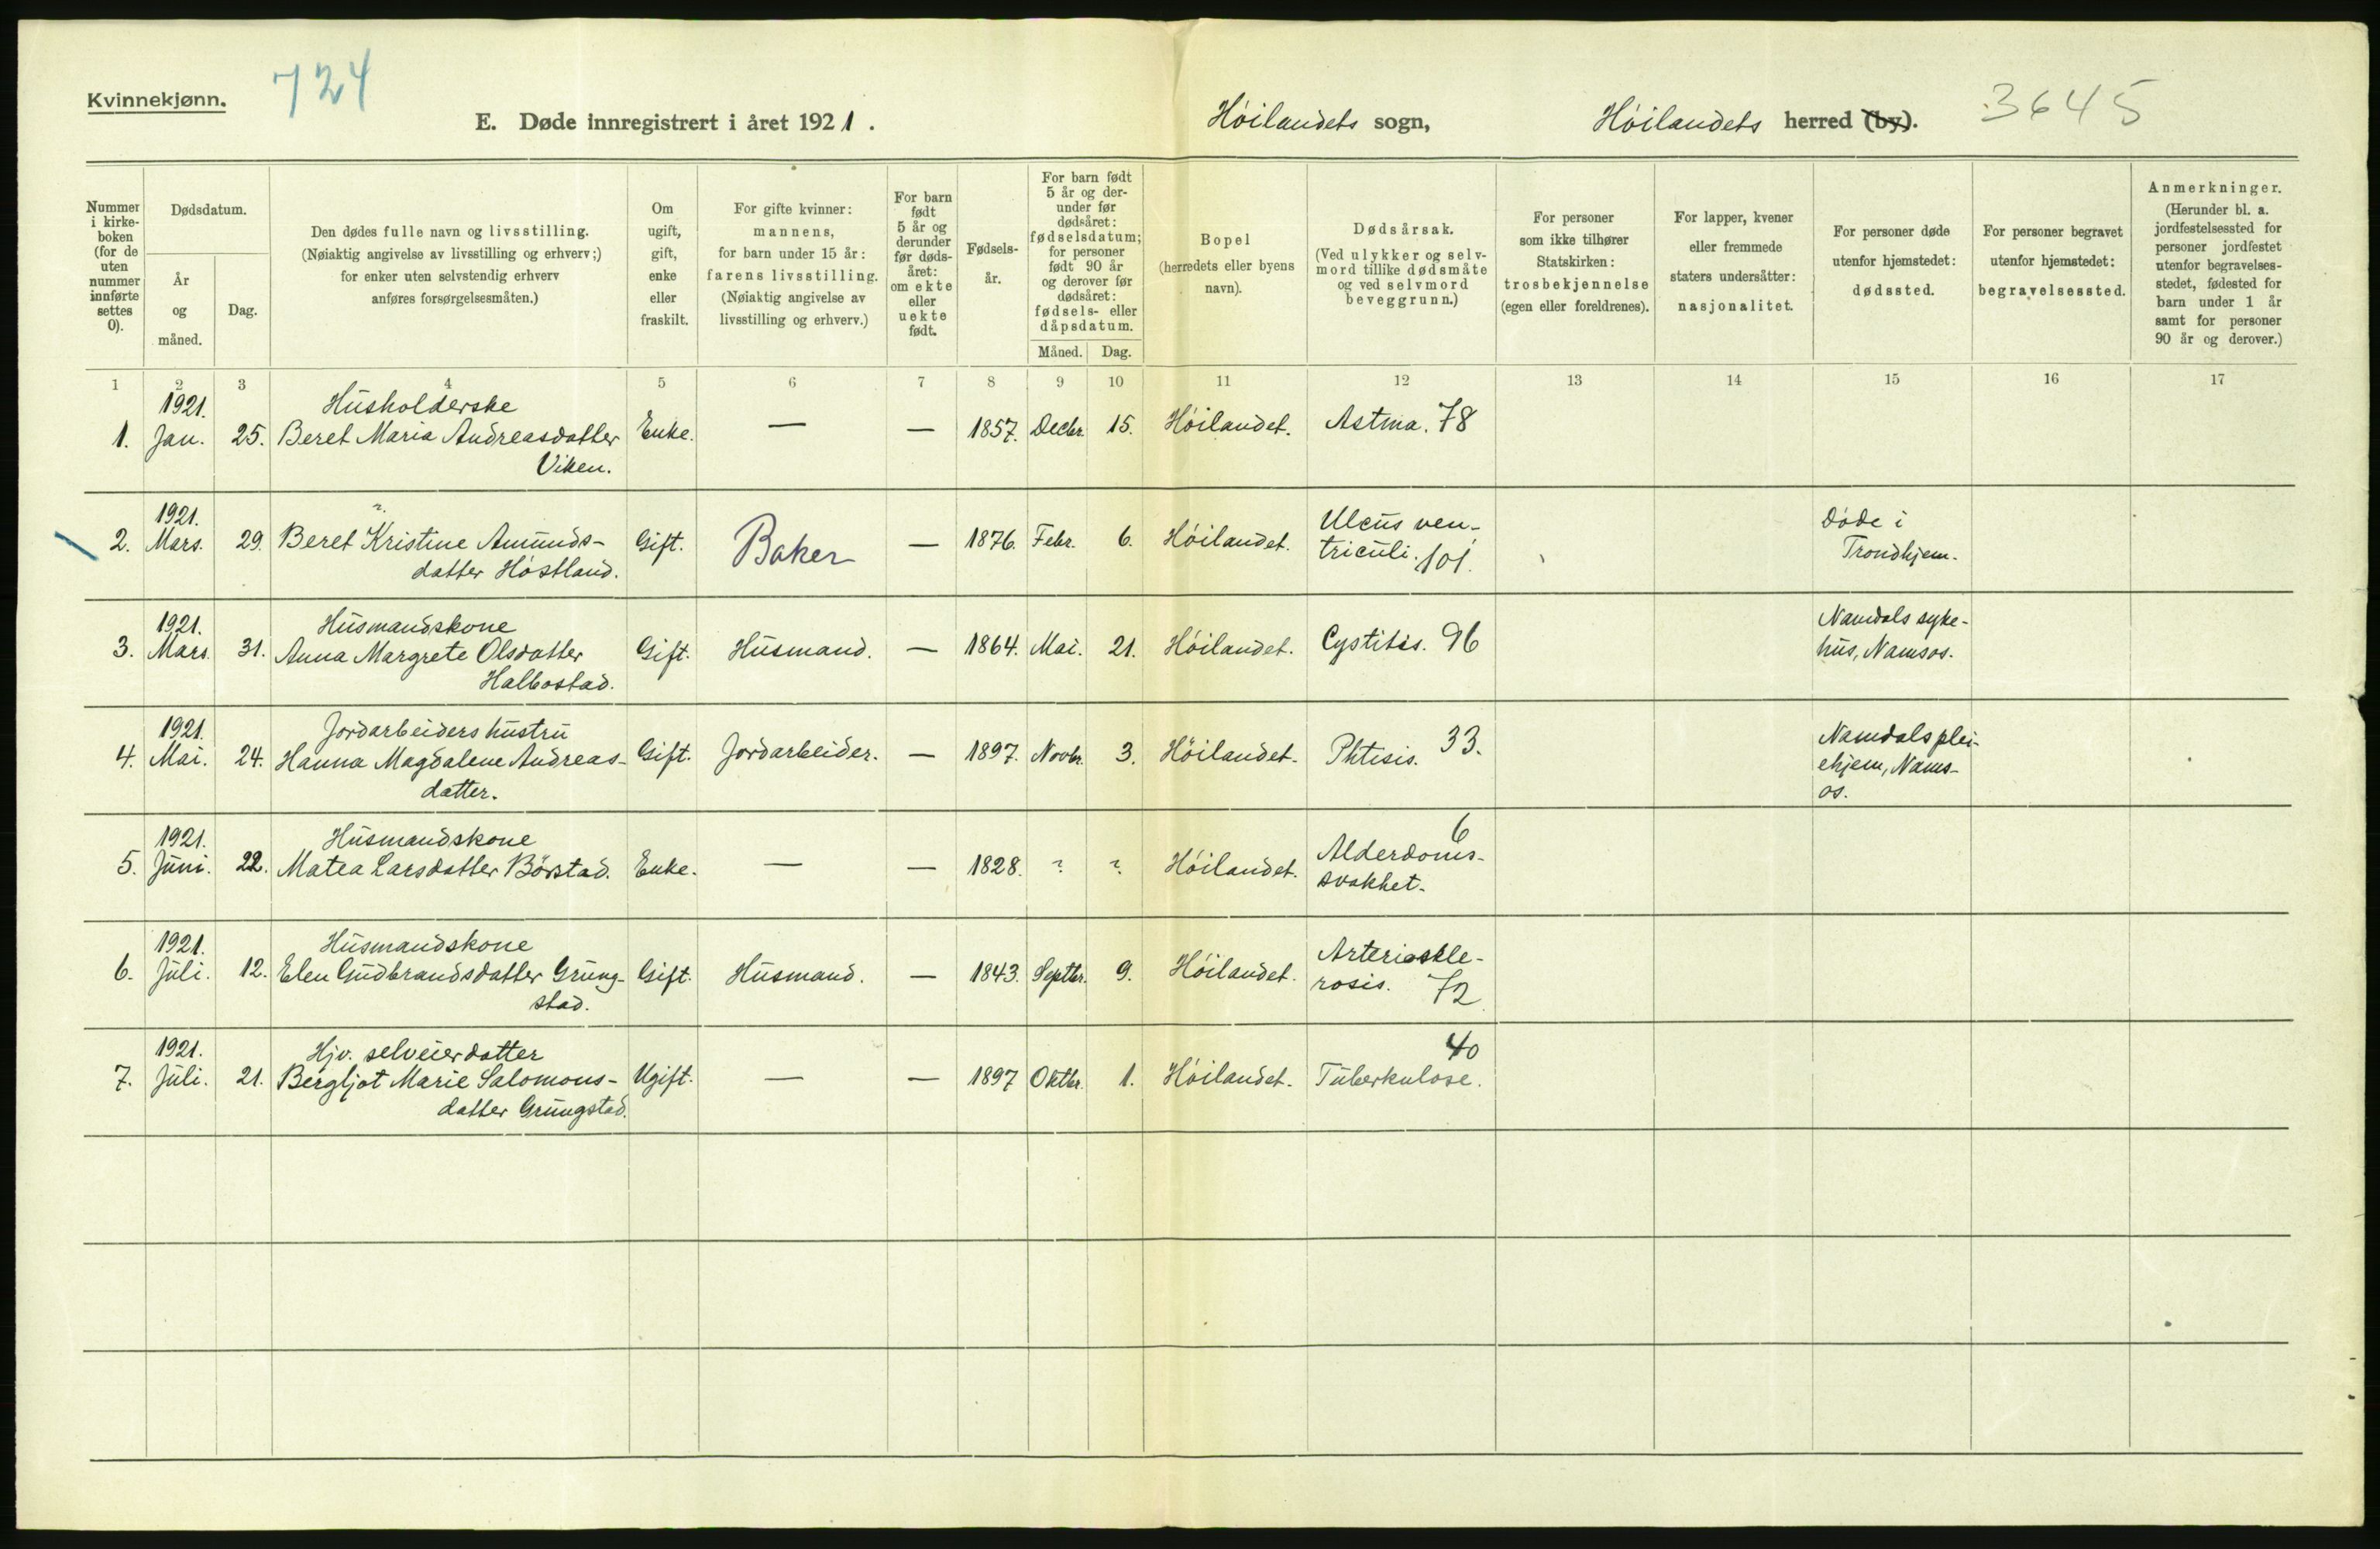 Kvinnekjønn.
724
E. Døde innregistrert i året 1921.
Høilandets sogn,
Høilandets herred (by).
3645
Nummer i kirke- boken (for de uten nummer innførte settes 0).
Dødsdatum.
År og måned.
Dag.
Den dødes fulle navn og livsstilling.
(Nøiaktig angivelse av livsstilling og erhverv;)
for enker uten selvstendig erhverv
anføres forsørgelsesmåten.)
Om ugift, gift, enke eller fraskilt.
For gifte kvinner:
mannens,
for barn under 15 år:
farens livsstilling.
(Nøiaktig angivelse av
livsstilling og erhverv.)
For barn født 5 år og derunder før døds- året: om ekte eller uekte født.
Fødsels- år.
For barn født 5 år og der- under før dødsåret: fødselsdatum; for personer født 90 år og derover før dødsåret: fødsels- eller dåpsdatum.
Måned.
Dag.
Bopel
(herredets eller byens
navn).
Dødsårsak.
(Ved ulykker og selv-
mord tillike dødsmåte
og ved selvmord
beveggrunn.)
For personer
som ikke tilhører
Statskirken:
trosbekjennelse
(egen eller foreldrenes).
For lapper, kvener
eller fremmede
staters undersåtter:
nasjonalitet.
For personer døde
utenfor hjemstedet:
dødssted.
For personer begravet
utenfor hjemstedet:
begravelsessted.
Anmerkninger.
(Herunder bl. a.
jordfestelsessted for
personer jordfestet
utenfor begravelses-
stedet, fødested for
barn under 1 år
samt for personer
90 år og derover.)
1 2 3 4 5 6 7 8 9 10 11 12 13 14 15 16 17
1921. Husholderske
1. Jan. 25. Beret Maria Andreasdatter Enke. — — 1857. Decbr. 15. Høilandet. Astma. 78
Viken.
1921. ? Ulcus ven- Døde i
2. Mars. 29. Beret Kristine Amunds- Gift. Baker — 1876. Febr. 6. Høilandet. triculi. 101. Trondhjem.
datter Høstland.
1921. Husmandskone Namdals syke-
3. Mars 31. Anna Margrete Olsdatter Gift. Husmand. — 1864. Mai. 21. Høilandet. Cystitis. 96 hus, Namsos.
Halbostad.
1921. Jordarbeiders hustru Namdals plei-
4. Mai. 24. Hanna Magdalene Andreas- Gift. Jordarbeider. — 1897. Novbr. 3. Høilandet. Phtisis. 33. ehjem, Nams-
datter. os.
1921. Husmandskone Alderdoms- 6
5. Juni. 22. Matea Larsdatter Børstad. Enke. — — 1828. ? ? Høilandet. svakhet.
1921. Husmandskone Arterioskle-
6. Juli. 12. Elen Gudbrandsdatter Grung- Gift. Husmand. — 1843. Septbr. 9. Høilandet. rosis. 72
stad.
1921. Hjv. selveierdatter 40
7. Juli. 21. Bergljot Marie Salomons- Ugift. — — 1897 Oktbr. 1. Høilandet. Tuberkulose.
datter Grungstad.